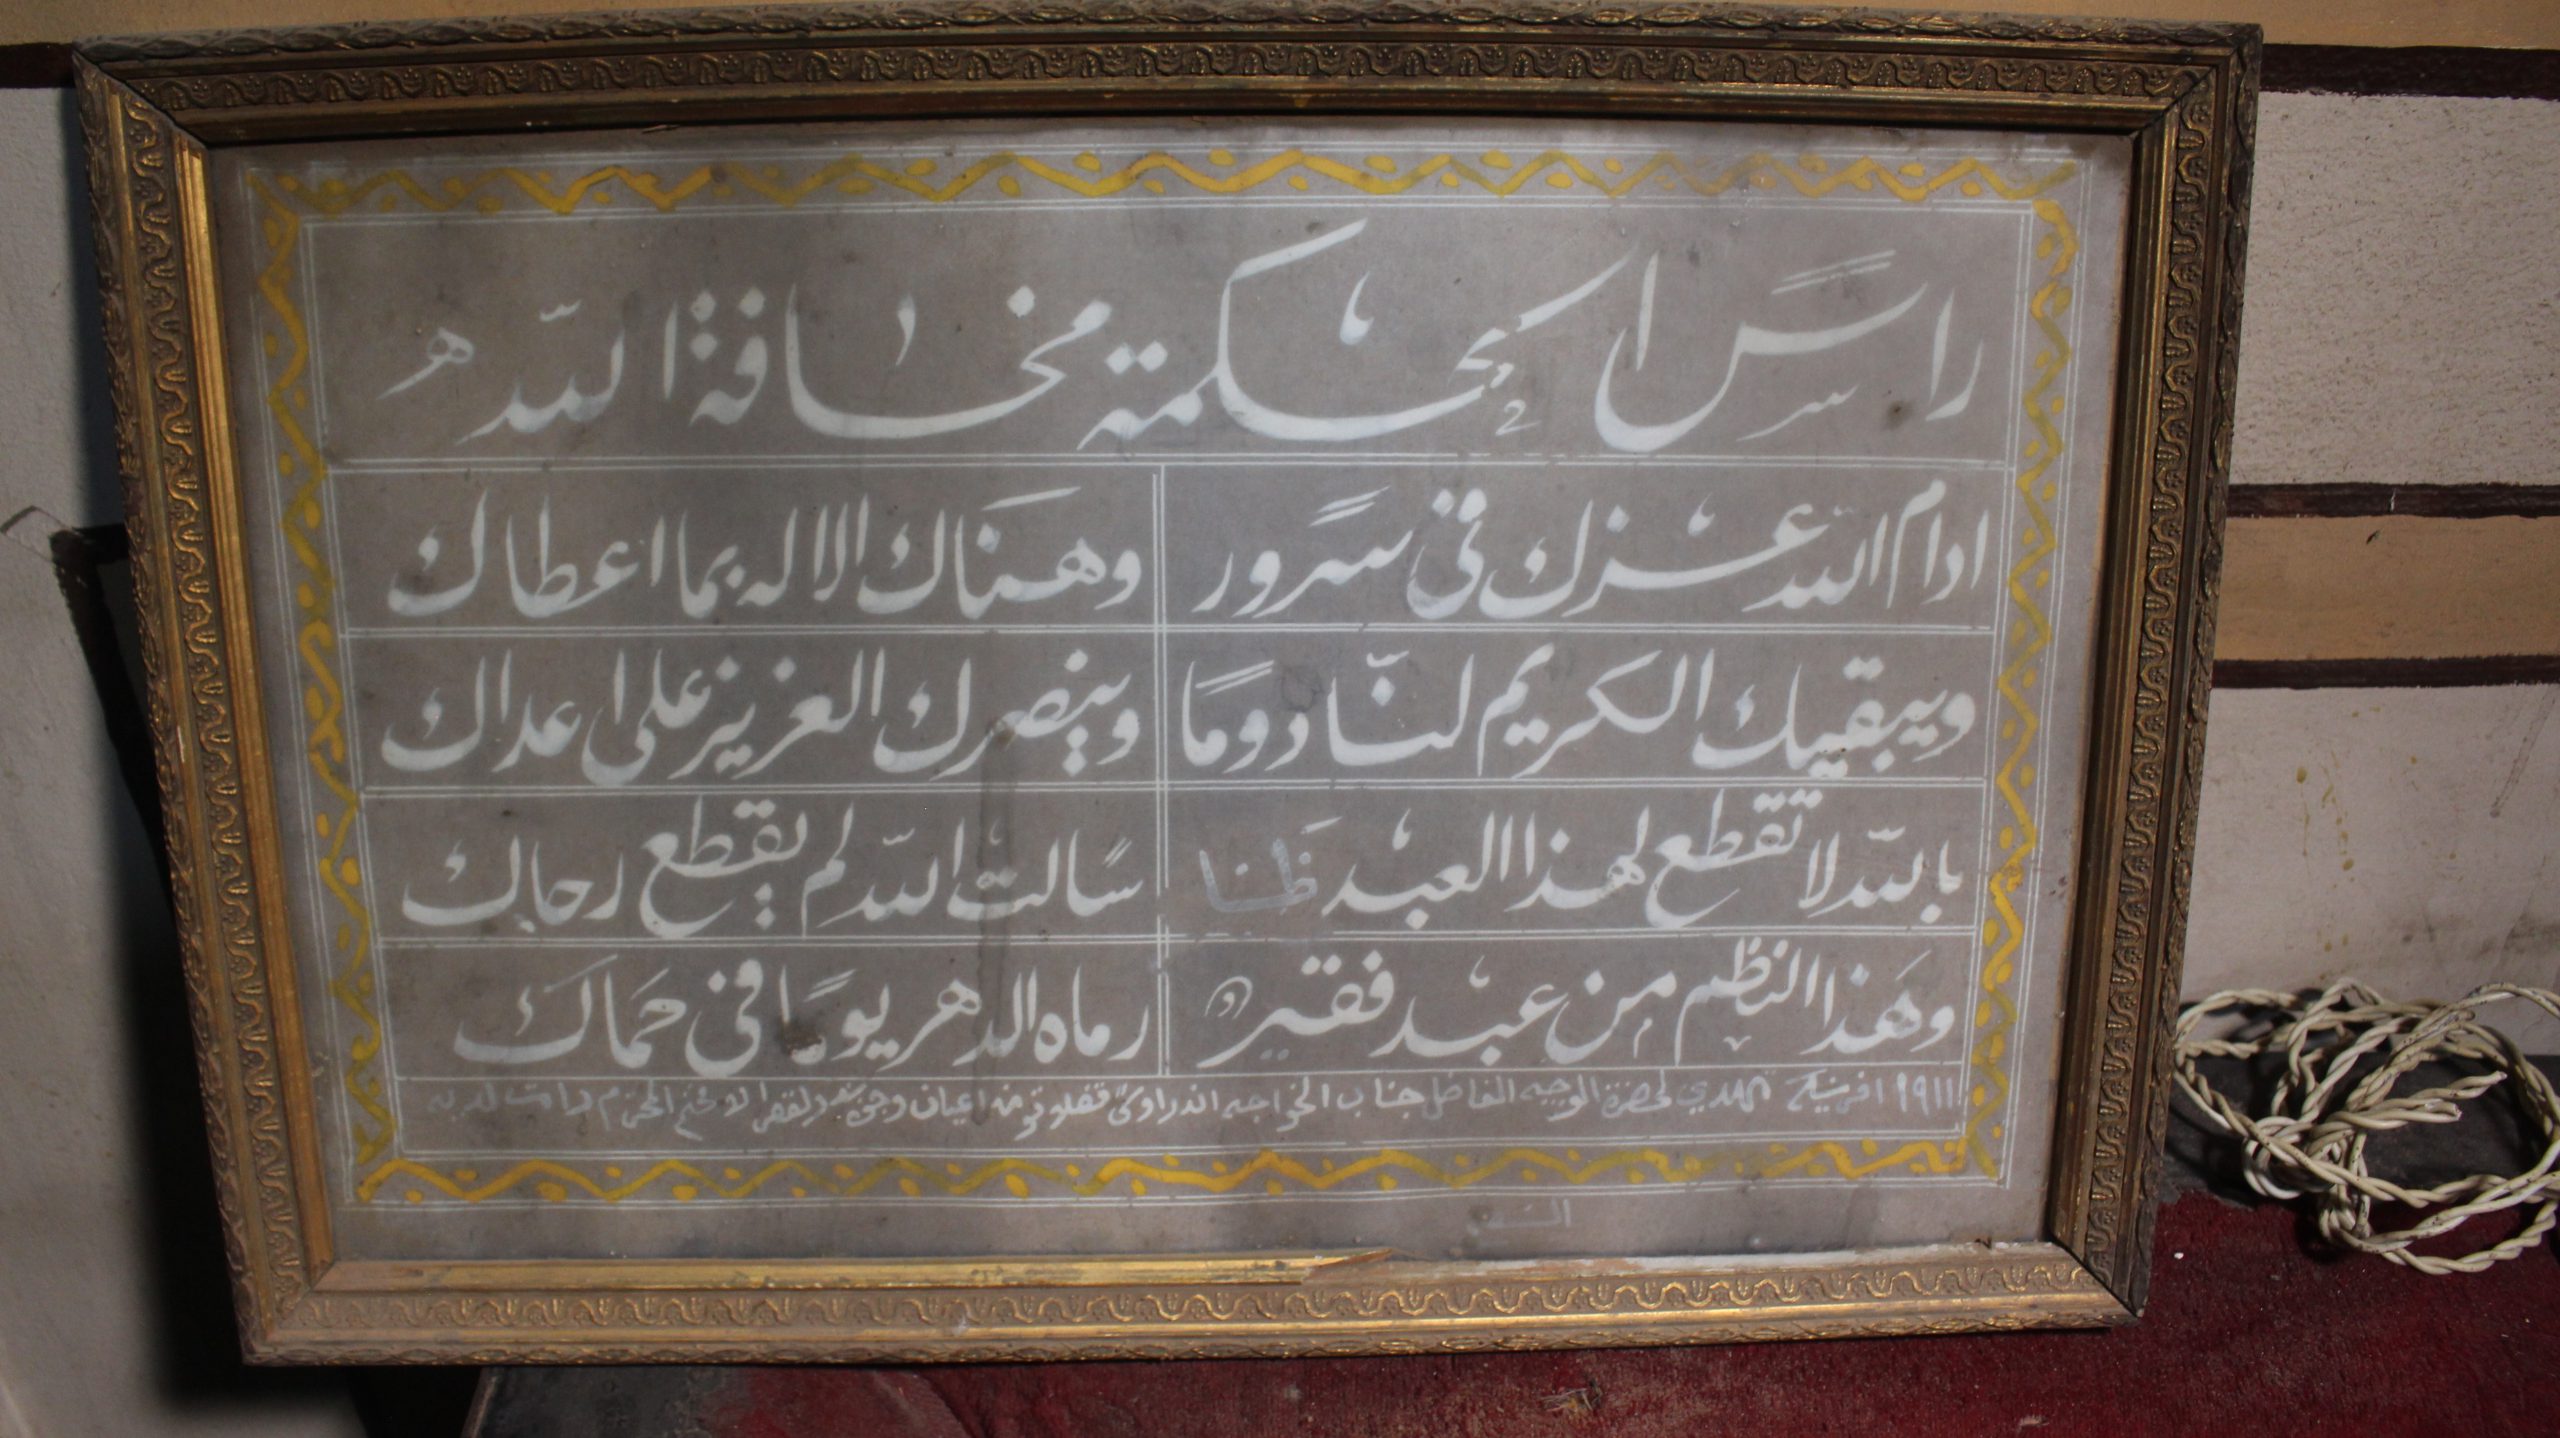 راس الحكمة مخافة الله
ادام الله عزك فى سرور وهناك الاله بما اعطاك
ويبقيك الكريم لنا دومًا وينصرك العزيز على اعداك
بالله لا تقطع لهذا العبد ظنا سالت الله لم يقطع رجاك
وهذا النظم من عبد فقير رماه الدهر يومًا فى حماك
١٩١١ افرنكية تهدي لحضرة الوجيه الفاضل جناب الخواجه اندراوس من اعيان